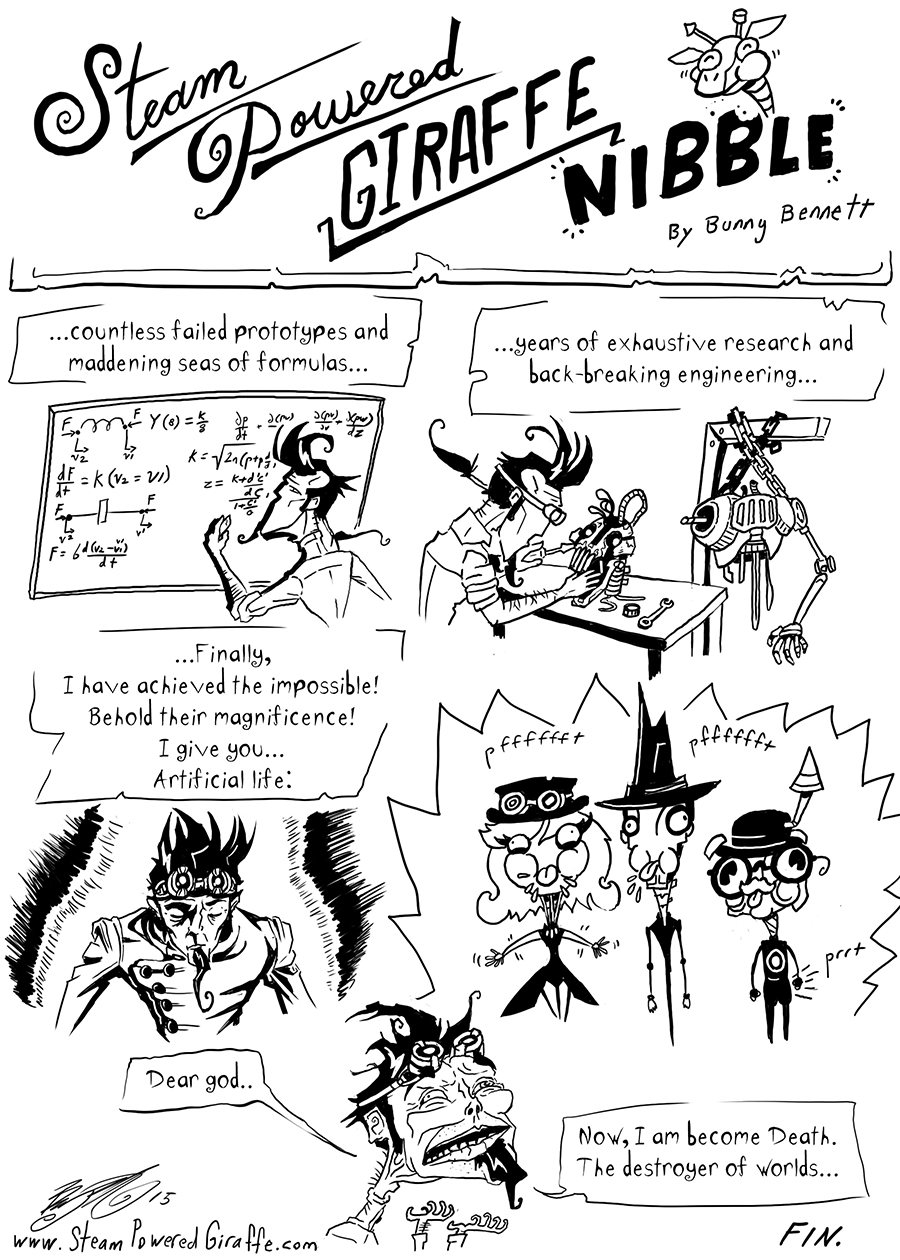 Steam
Powered
GIRAFFE
NIBBLE
By Bunny Bennett
...countless failed prototypes and
maddening seas of formulas...
F F Y(s) = K/s
v2 v1
dF/dt = K(v2 = v1)
F F
v2 v1
...years of exhaustive research and
back-breaking engineering...
...Finally,
I have achieved the impossible!
Behold their magnificence!
I give you...
Artificial life:
pfffffft
pfffffft
prrt
Dear god..
Now, I am become Death.
The destroyer of worlds...
'15
www.SteamPoweredGiraffe.com
FIN.